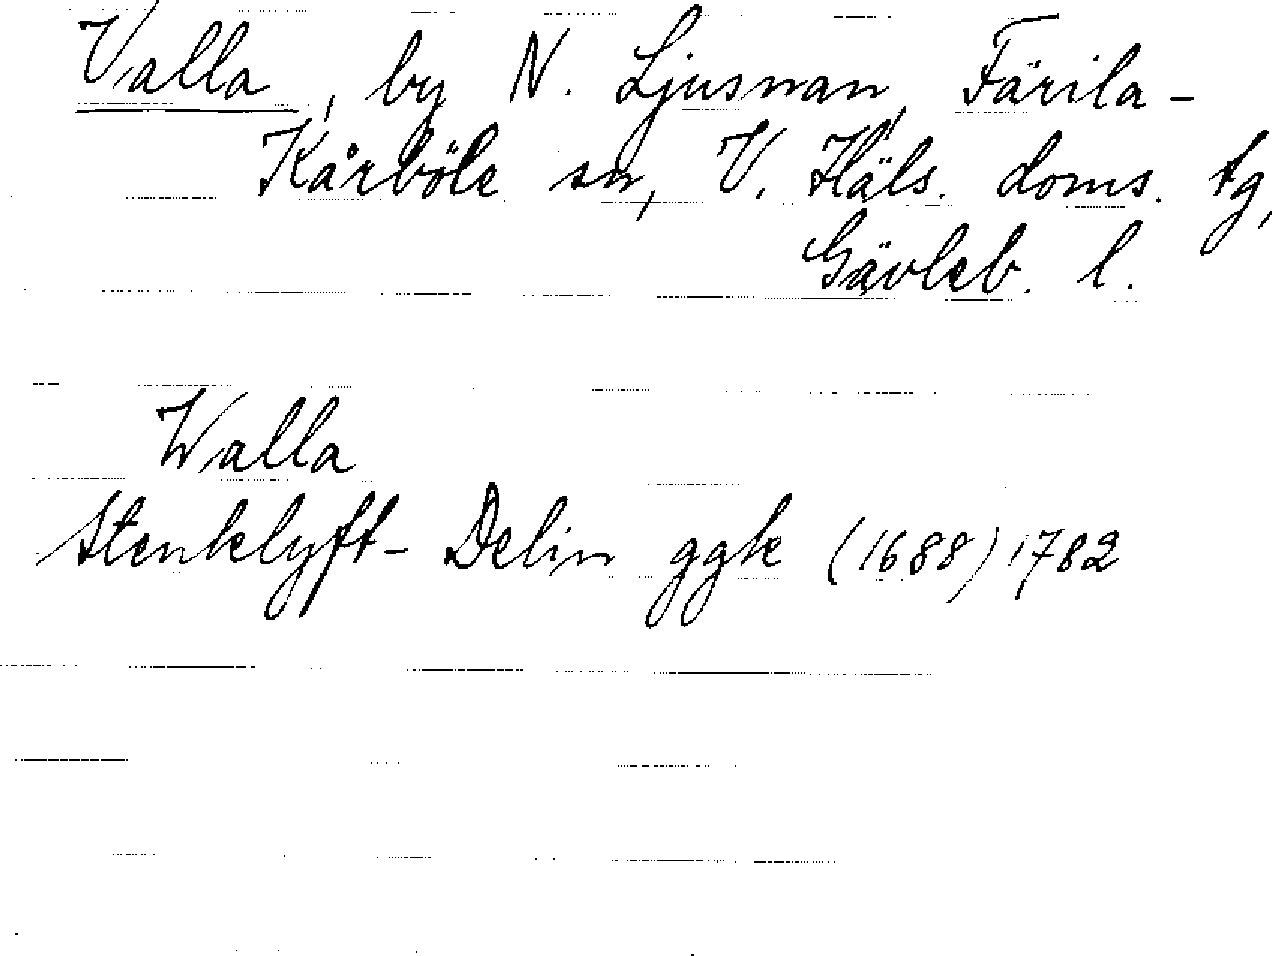 Valla, by N. Ljusnan, Färila-
Kårböle sn, V. Häls. doms. tg,
Gävleb. l.
Walla
Stenklyft- Delin ggk (1688) 1782